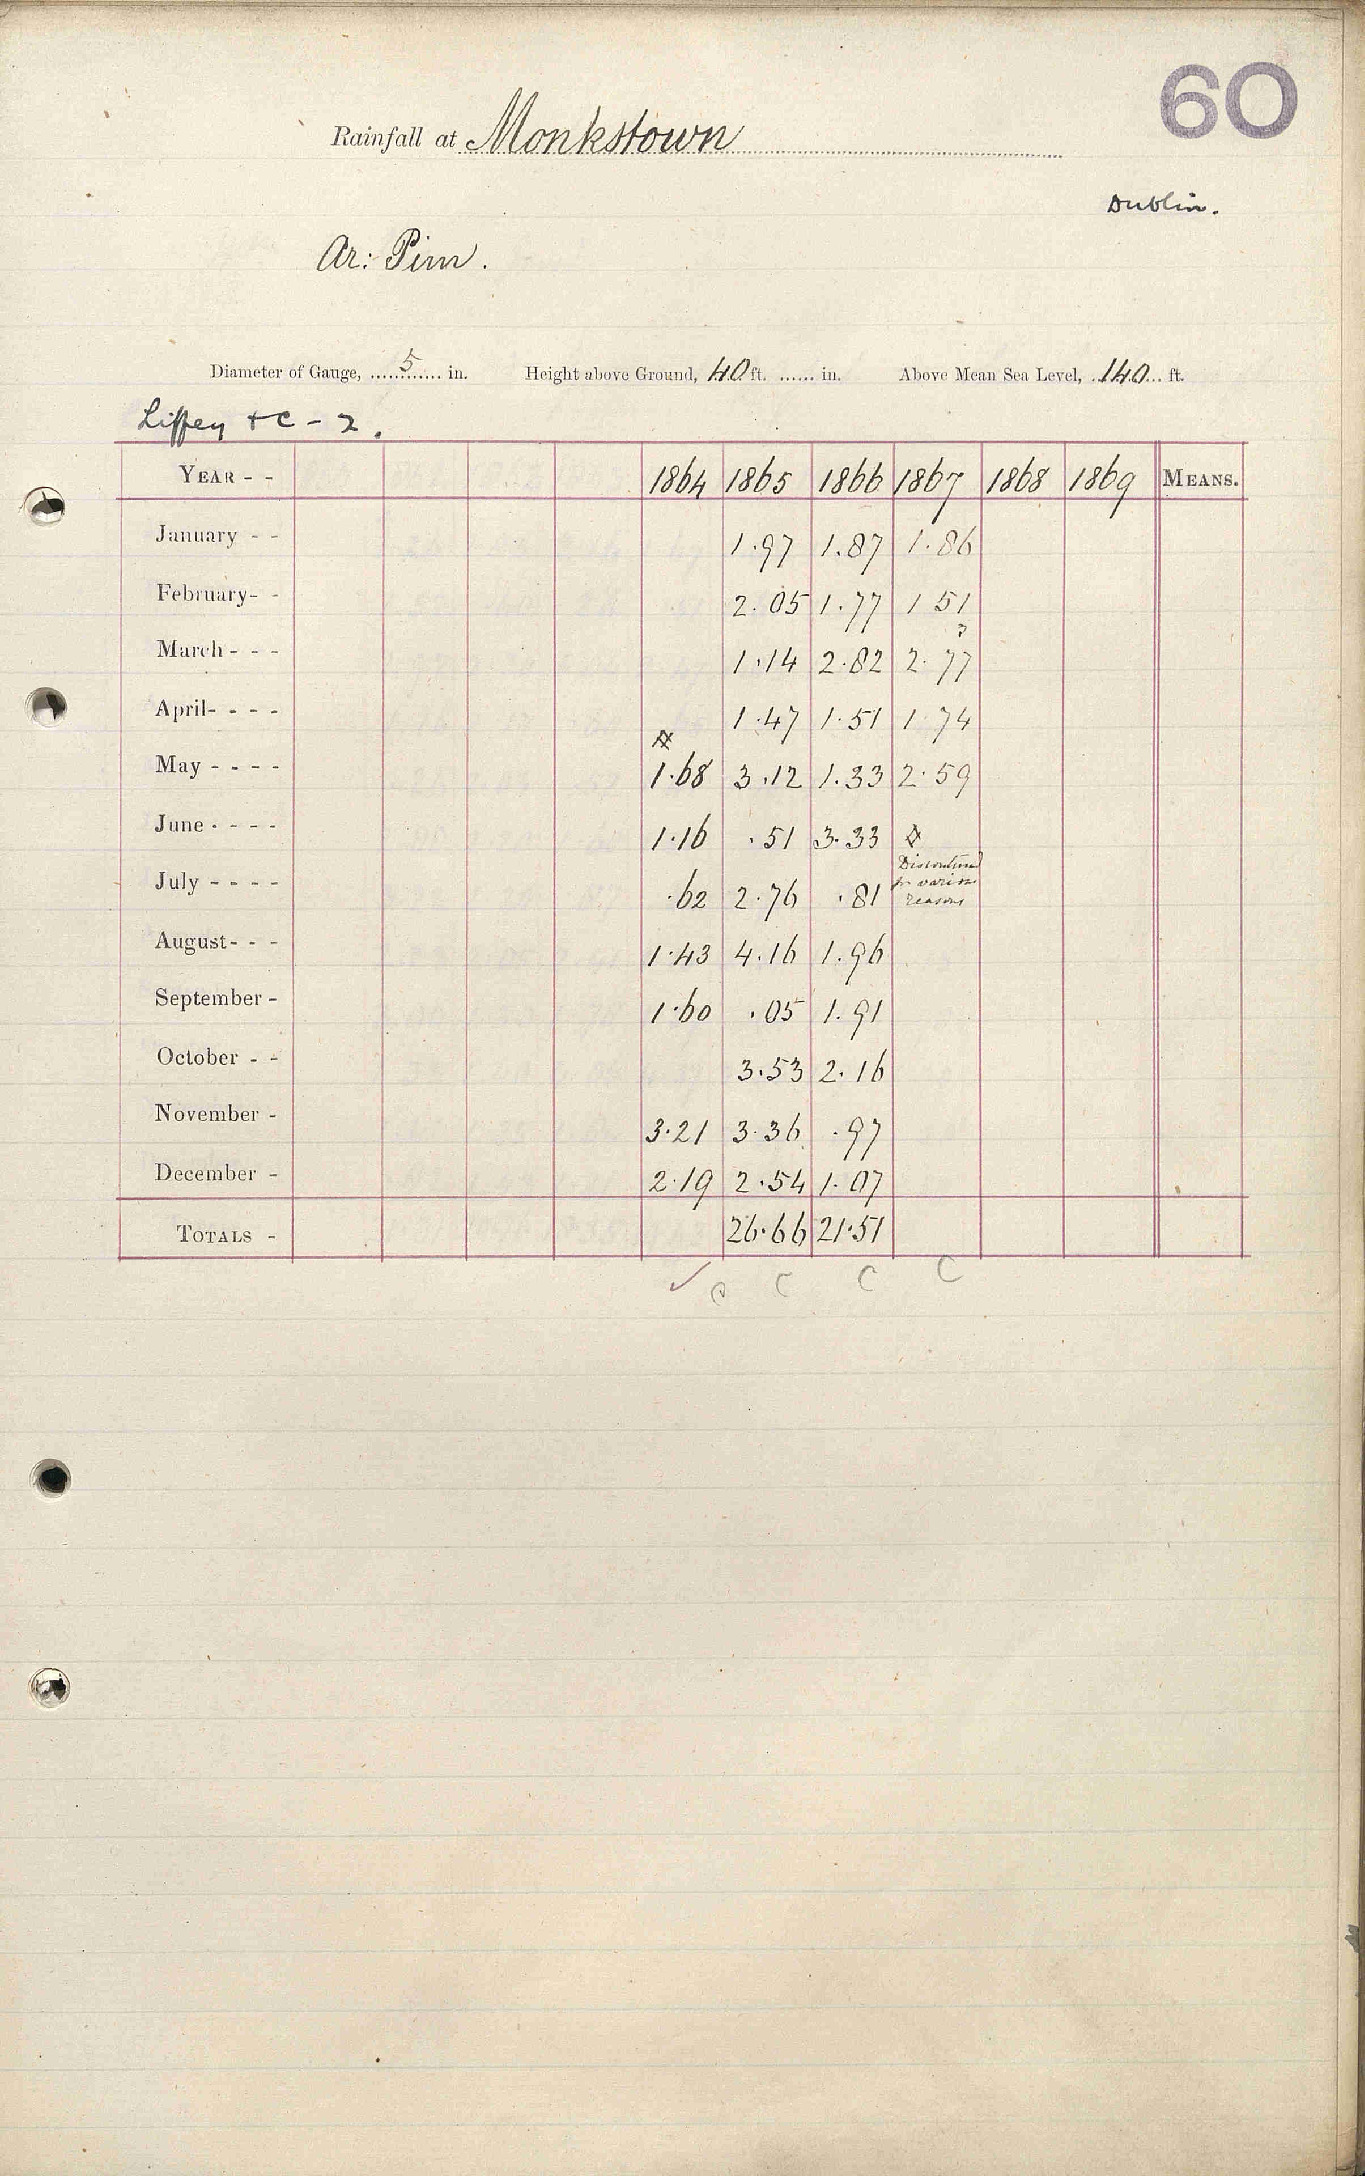 60
Rainfall at Monkstown
Dublin.
Ar: Pim.
Diameter of Gauge, 5 in. Height above Ground, 40 ft. in. Above Mean Sea Level, 140 ft.
Liffey + C - 2.
YEAR - - 1864 1865 1866 1867 1868 1869 MEANS.
January - - 1.97 1.87 1.86
February - - 2.05 1.77 1 51
?
March - - - 1.14 2.82 2.77
April - - - - 1.47 1.51 1.74
May - - - - 1.68 3.12 1.33 2.59
June - - - - 1.16 .51 3.33
July - - - - .62 2.76 .81 Discontinued for various reasons
August - - - 1.43 4.16 1.96
September - 1.60 .05 1.91
October - - 3.53 2.16
November - 3.21 3.36 .97
December - 2.19 2.54 1.07
TOTALS - 26.66 21.51
✓ C C C C